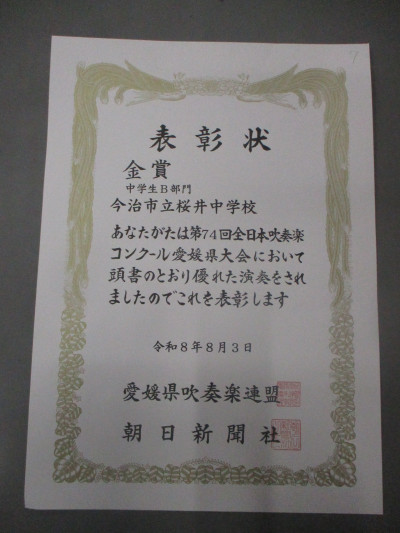 表彰状
金賞
中学生B部門
今治市立桜井中学校
あなたがたは第74回全日本吹奏楽
コンクール愛媛県大会において
頭書のとおり優れた演奏をされ
ましたのでこれを表彰します
令和8年8月3日
愛媛県吹奏楽連盟
朝日新聞社